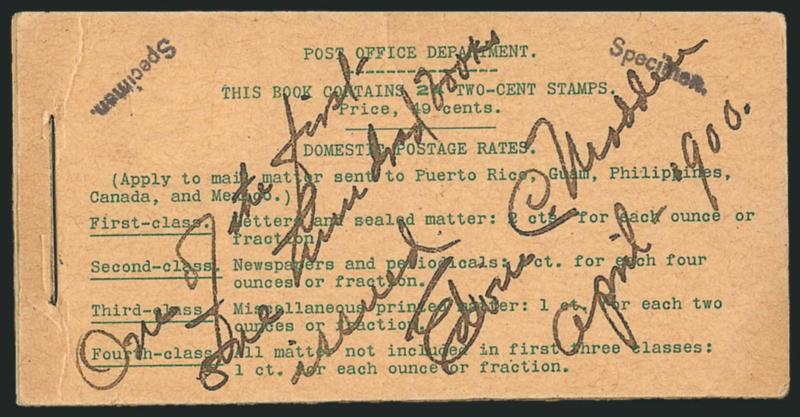 Specimen.
Specimen.
POST OFFICE DEPARTMENT.
THIS BOOK CONTAINS 24 TWO-CENT STAMPS.
Price, 49 cents.
DOMESTIC POSTAGE RATES.
(Apply to mail matter sent to Puerto Rico, Guam, Philippines,
Canada, and Mexico.)
First-class. Letters and sealed matter: 2 cts. for each ounce or
fraction.
Second-class. Newspapers and periodicals: 1 ct. for each four
ounces or fraction.
Third-class. Miscellaneous printed matter: 1 ct. for each two
ounces or fraction.
Fourth-class. All matter not included in first three classes:
1 ct. for each ounce or fraction.
One of the first
one hundred books
issued
Edwin C Madden
April - 1900.